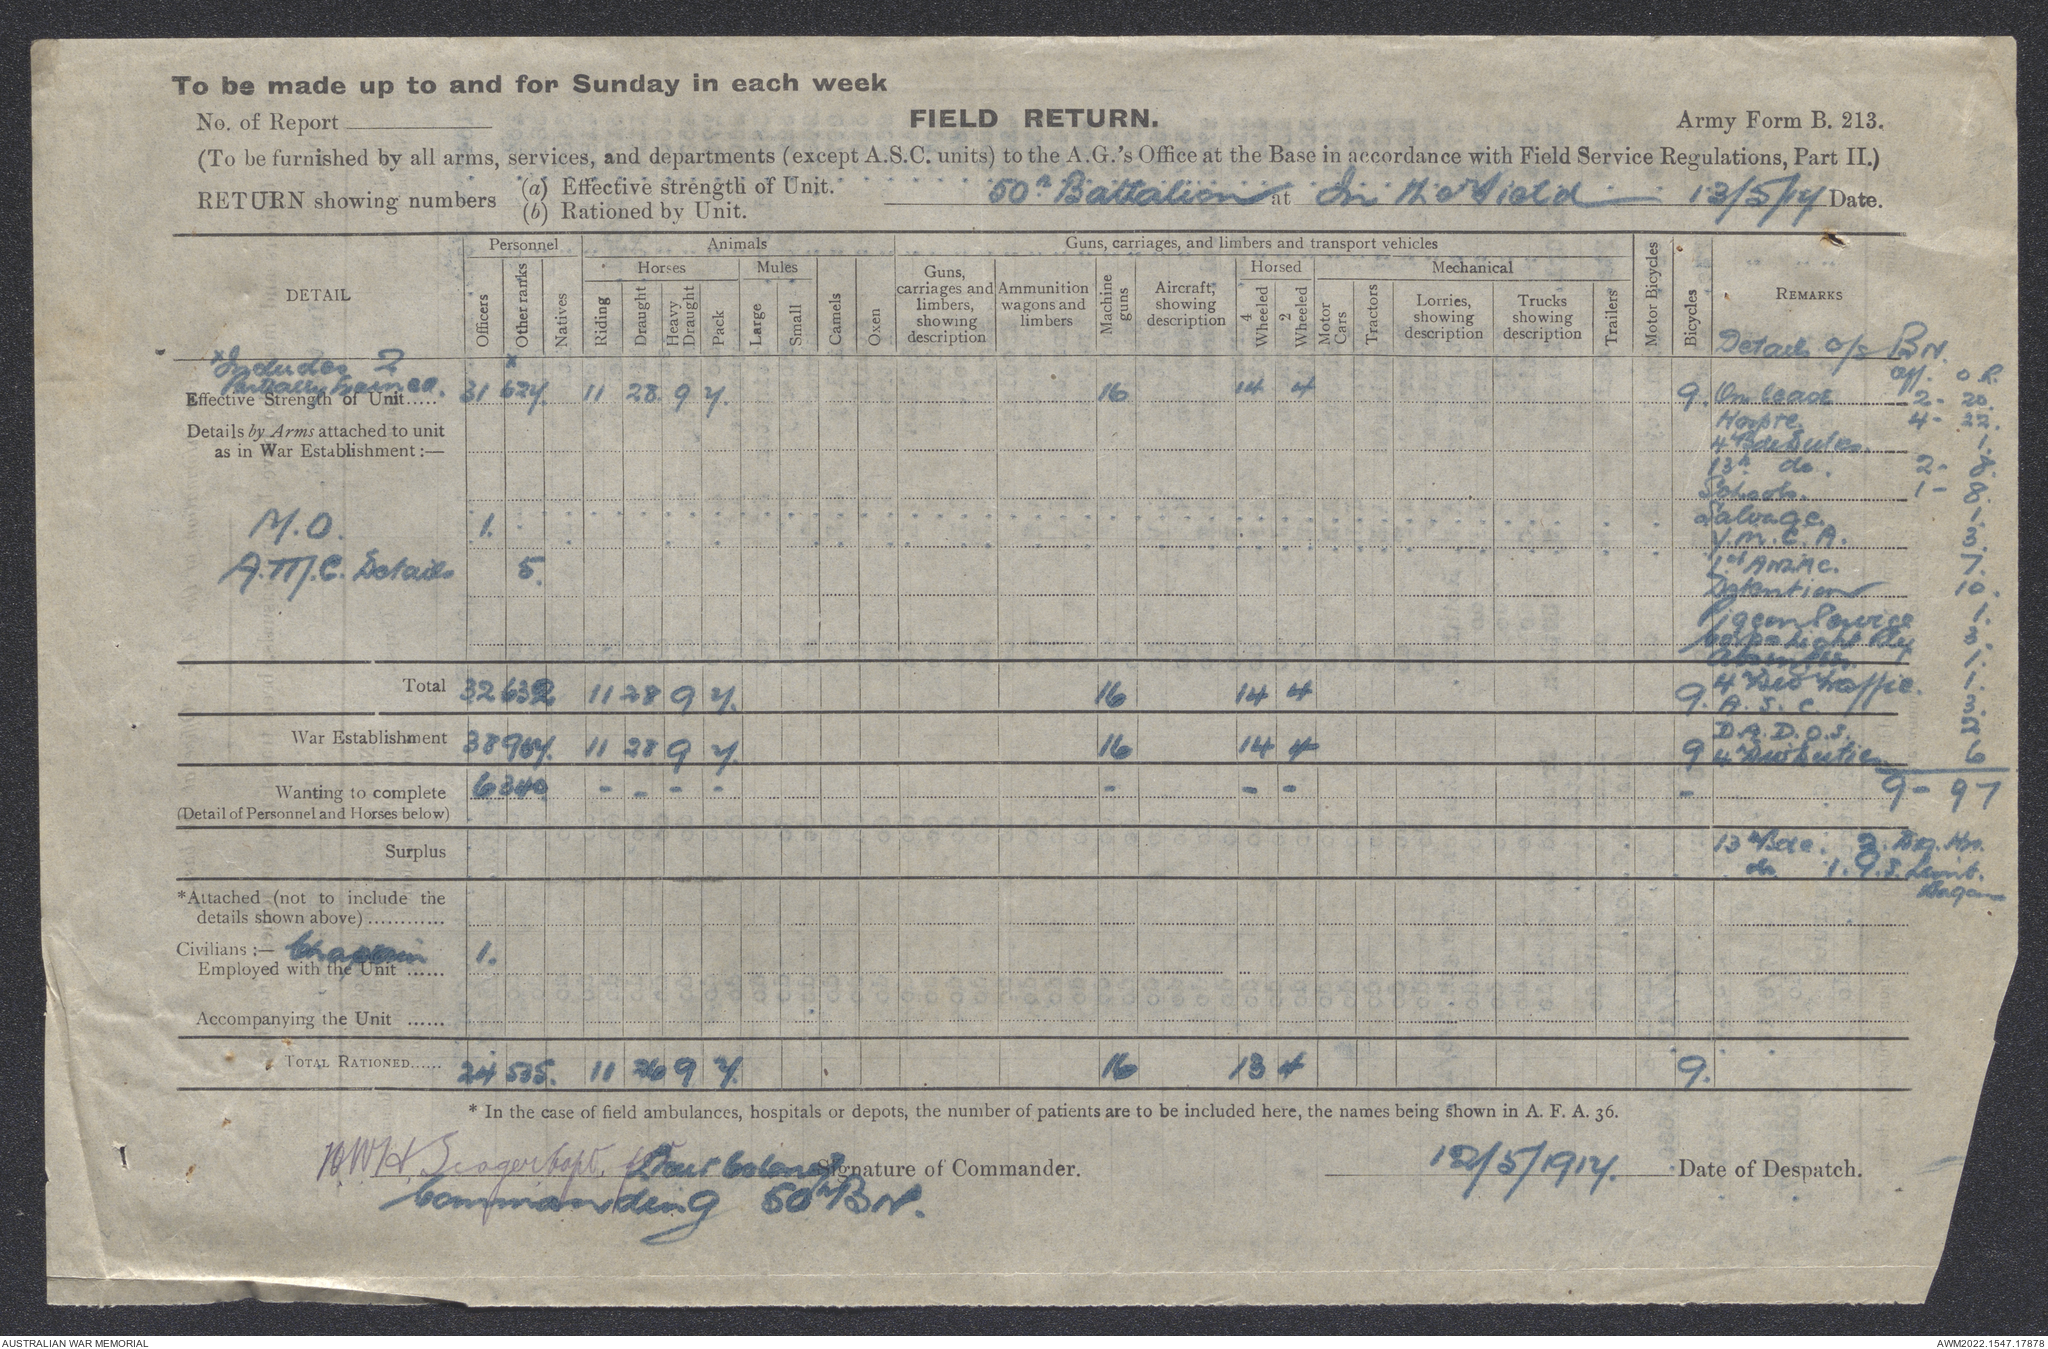 To be made up to and for Sunday in each week
No. of Report
FIELD RETURN.
Army Form B. 213.
(To be furnished by all arms, services, and departments (except A.S.C. units) to the A.G.'s Office at the Base in accordance with Field Service Regulations, Part II.)
RETURN showing numbers
(a) Effective strength of Unit.
(b) Rationed by Unit.
50th Battalion at In the Field 13/5/17 Date.
DETAIL
Personnel
Animals
Guns, carriages, and limbers and transport vehicles
Horses
Mules
Horsed
Mechanical
Officers
Other ranks
Natives
Riding
Draught
Heavy Draught
Pack
Large
Small
Camels
Oxen
Guns, carriages and limbers, showing description
Ammunition wagons and limbers
Machine guns
Aircraft, showing description
4 Wheeled
2 Wheeled
Motor Cars
Tractors
Lorries, showing description
Trucks showing description
Trailers
Motor Bicycles
Bicycles
REMARKS
Details o/s BN.
Off. O.R.
*Includes 2
Partially trained.
*
Effective Strength of Unit..... 31 627. 11 28. 9 7. 16 14 4 9.
On leave 2- 20.
Hospte. 4- 22.
Details by Arms attached to unit
as in War Establishment :—
4th Bde Duties. 1.
13th do. 2- 8.
Schools. 1- 8.
M.O. 1.
Salvage. 1.
Y.M.C.A. 3.
A.M.C. Details 5.
1st Anzac. 7.
Detention 10.
Pigeon Service 1.
Corps Light Rly 3.
Absentee. 1.
Total 32 632 11 28 9 7. 16 14 4 9.
4th Div Traffic. 1.
A.S.C. 3.
War Establishment 38 967. 11 28 9 7. 16 14 4 9
D.A.D.O.S. 2
4th Div Duties 6
Wanting to complete 6 340 - - - - - - - -
9- 97
(Detail of Personnel and Horses below)
Surplus
13th Bde. 2. Dr. Hs.
do 1. G.S. Limb.
Wagon
*Attached (not to include the
details shown above) ............
Civilians :— Chaplain 1.
Employed with the Unit ......
Accompanying the Unit ......
TOTAL RATIONED...... 24 535. 11 26 9 7. 16 13 4 9.
* In the case of field ambulances, hospitals or depots, the number of patients are to be included here, the names being shown in A. F. A. 36.
H.W.H. Seager Capt. for Lieut Colonel Signature of Commander.
12/5/1917. Date of Despatch.
Commanding 50th BN.
AUSTRALIAN WAR MEMORIAL
AWM2022.1547.17878